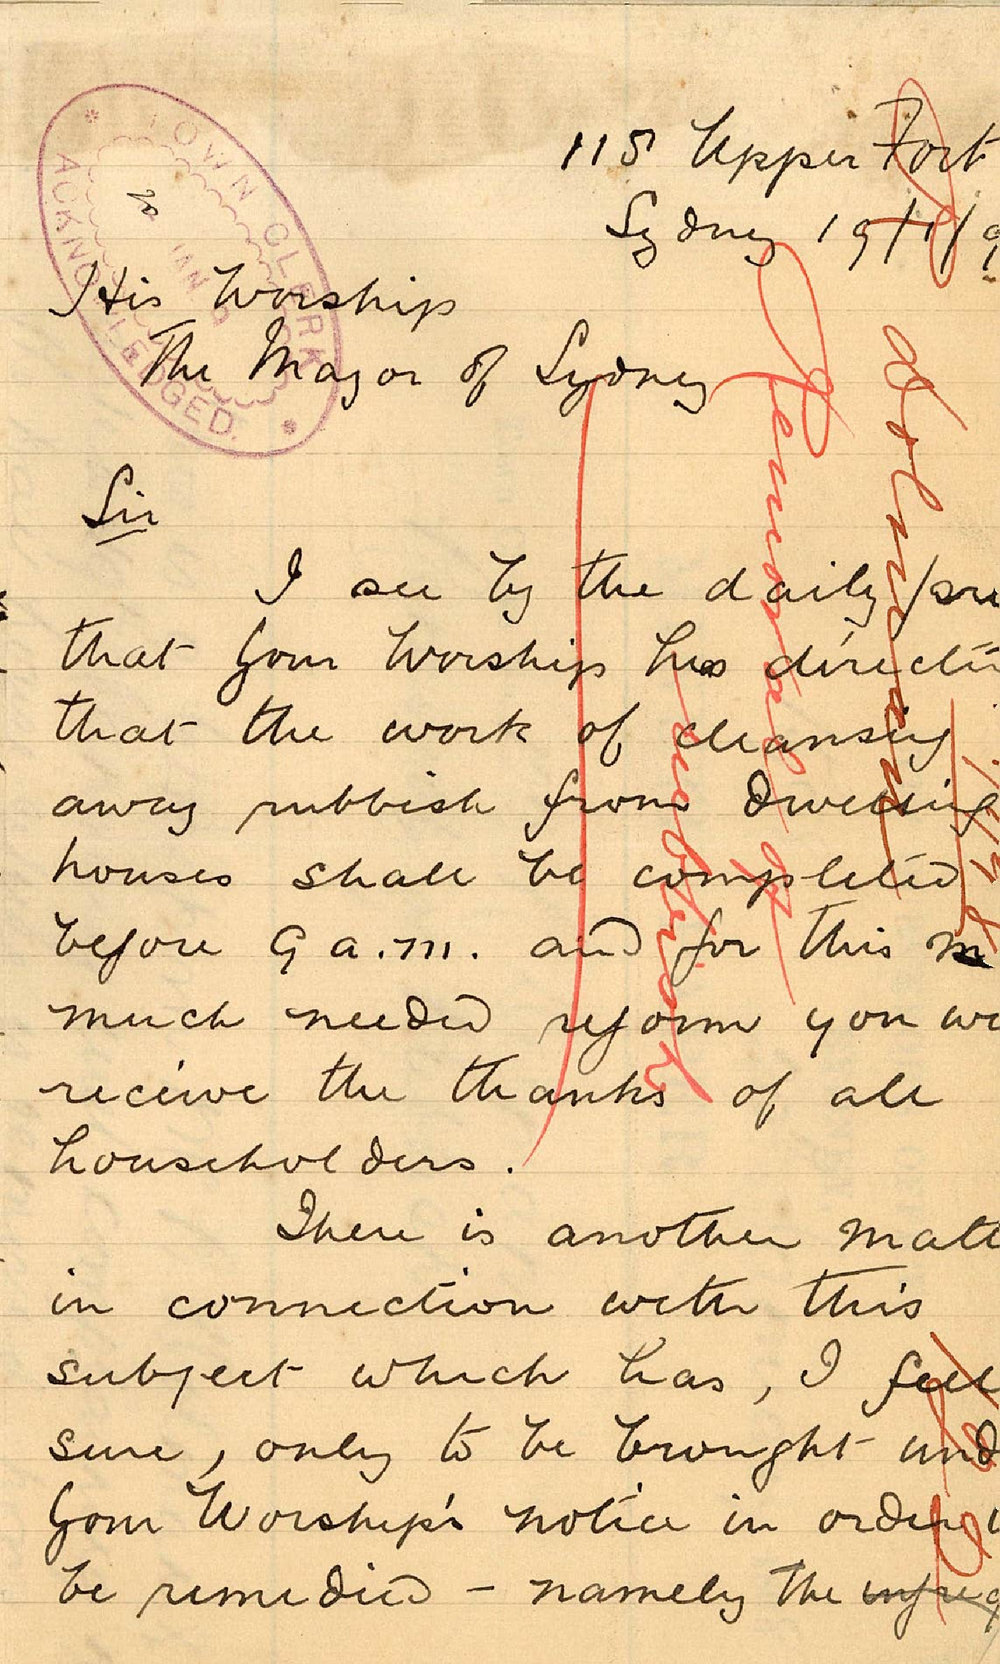 TOWN CLERK
JAN
ACKNOWLEDGED.
115 Upper Fort
Sydney 19/1/9
His Worship
The Mayor of Sydney
Sir
I see by the daily
that Your Worship has
that the work of cleansing
away rubbish from dwelling
houses shall be completed
before 9 a.m. and for this
much needed reform you
receive the thanks of all
householders.
There is another
in connection with this
subject which has, I feel
sure, only to be brought
Your Worship's notice in order
be remedied - namely the
Removal of
rubbish